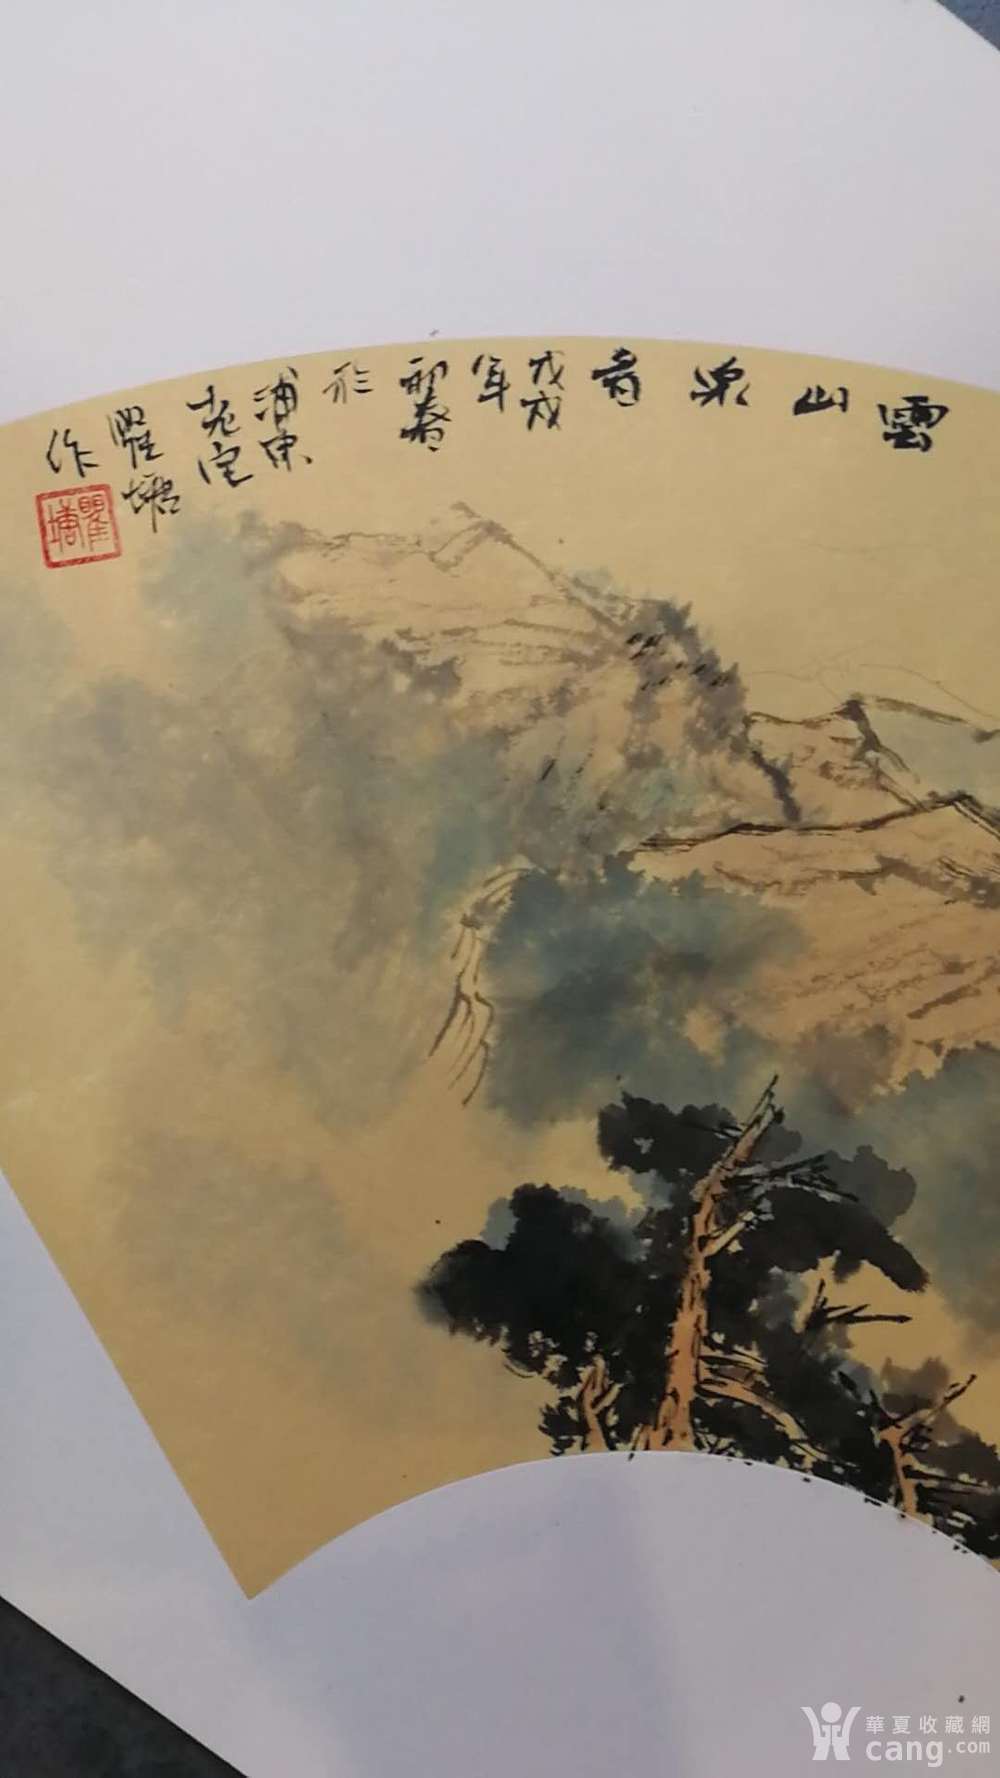 雲山泉音
戊戌
年
初春
於
浦東
老宅
瞿塘
作
瞿塘
華夏收藏網
cang.com